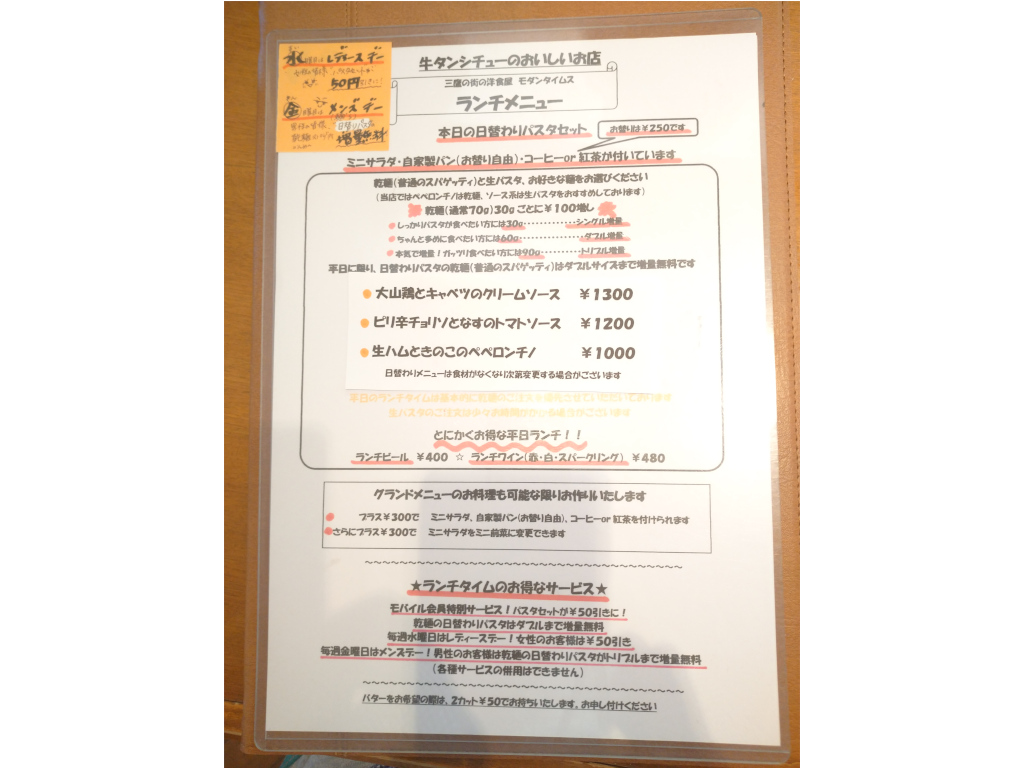 水曜日は レディースデー
50円
金曜日は メンズデー
日替りパスタ
増量無料
牛タンシチューのおいしいお店
三鷹の街の洋食屋 モダンタイムス
ランチメニュー
本日の日替わりパスタセット
お替りは¥250です
ミニサラダ・自家製パン(お替り自由)・コーヒーor紅茶が付いています
乾麺(普通のスパゲッティ)と生パスタ、お好きな麺をお選びください
(当店ではペペロンチーノは乾麺、ソース系は生パスタをおすすめしております)
乾麺(通常70g)30gごとに¥100増し
しっかりパスタが食べたい方には30g・・・・・・・・・・・・シングル増量
ちゃんと多めに食べたい方には60g・・・・・・・・・・・・ダブル増量
本気で増量!ガッツリ食べたい方には90g・・・・・・・・・トリプル増量
平日に限り、日替わりパスタの乾麺(普通のスパゲッティ)はダブルサイズまで増量無料です
大山鶏とキャベツのクリームソース ¥1300
ピリ辛チョリソとなすのトマトソース ¥1200
生ハムときのこのペペロンチーノ ¥1000
日替わりメニューは食材がなくなり次第変更する場合がございます
平日のランチタイムは基本的に乾麺のご注文を優先させていただいております
生パスタのご注文は少々お時間かかる場合がございます
とにかくお得な平日ランチ!!
ランチビール ¥400 ☆ ランチワイン(赤・白・スパークリング) ¥480
グランドメニューのお料理も可能な限りお作りいたします
プラス¥300で ミニサラダ、自家製パン(お替り自由)、コーヒーor紅茶を付けられます
さらにプラス¥300で ミニサラダをミニ前菜に変更できます
★ランチタイムのお得なサービス★
モバイル会員特別サービス!パスタセットが¥50引きに!
乾麺の日替わりパスタはダブルまで増量無料
毎週水曜日はレディースデー!女性のお客様は¥50引き
毎週金曜日はメンズデー!男性のお客様は乾麺の日替わりパスタがトリプルまで増量無料
(各種サービスの併用はできません)
バターをお希望の際は、2カット¥50でお持ちいたします。お申し付けください